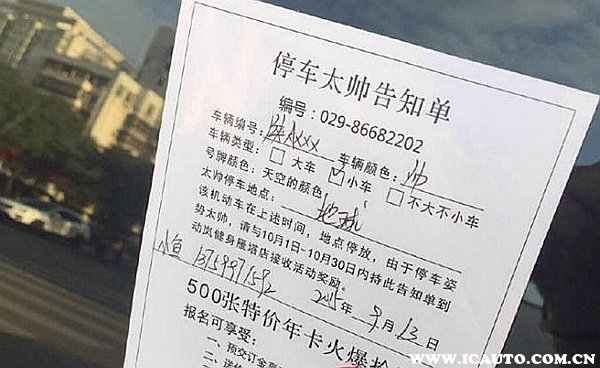 停车太帅告知单
编号：029-86682202
车辆编号：陕Axxxx 车辆颜色：帅
车辆类型：□ 大车 ☑ 小车 □ 不大不小车
号牌颜色：天空的颜色
太帅停车地点：地球
该机动车在上述时间，地点停放，由于停车姿
势太帅，请与10月1日-10月30日内持此告知单到
动岚健身雁塔店接收活动奖励。
小鱼 2015年9月13日
500张特价年卡火爆抢
报名可享受：
一、预交订金享
WWW.ICAUTO.COM.CN